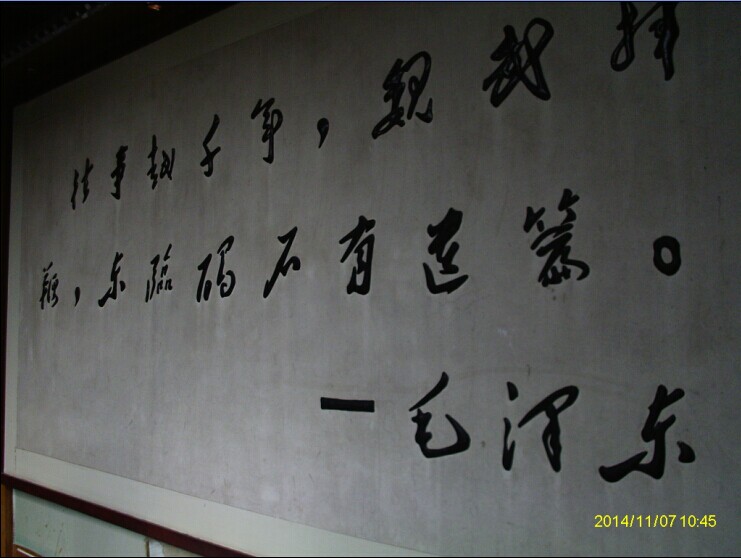 往事越千年，魏武挥
鞭，东臨碣石有遗篇。
—毛泽东
2014/11/07 10:45